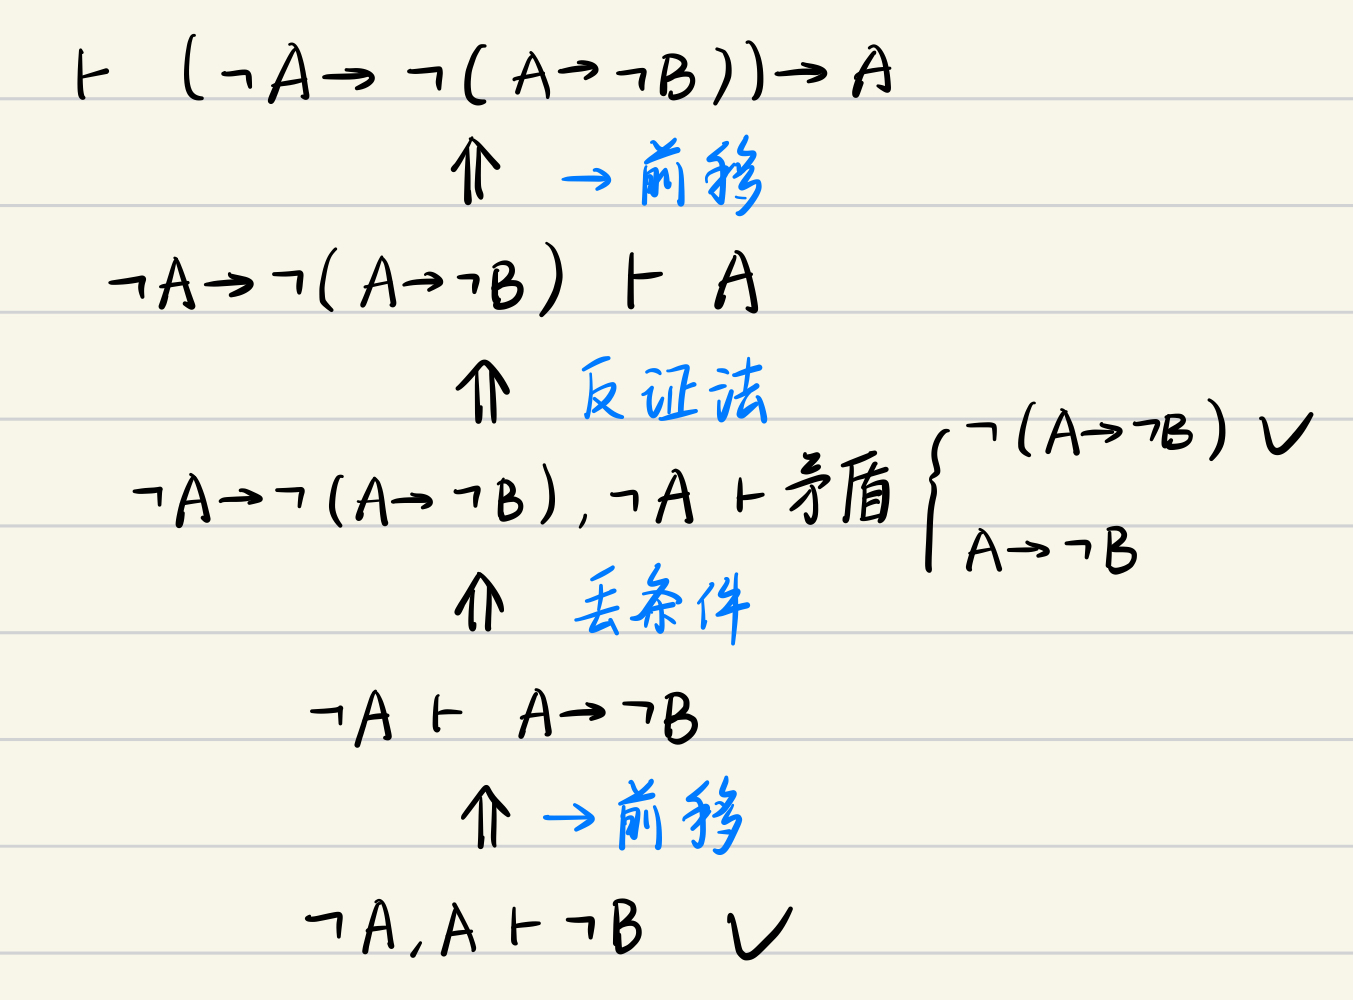 ⊢ (¬A→¬(A→¬B))→A
⇑ →前移
¬A→¬(A→¬B) ⊢ A
⇑ 反证法
¬A→¬(A→¬B),¬A ⊢ 矛盾 { ¬(A→¬B) ✓
A→¬B
⇑ 丢条件
¬A ⊢ A→¬B
⇑ →前移
¬A,A ⊢ ¬B ✓